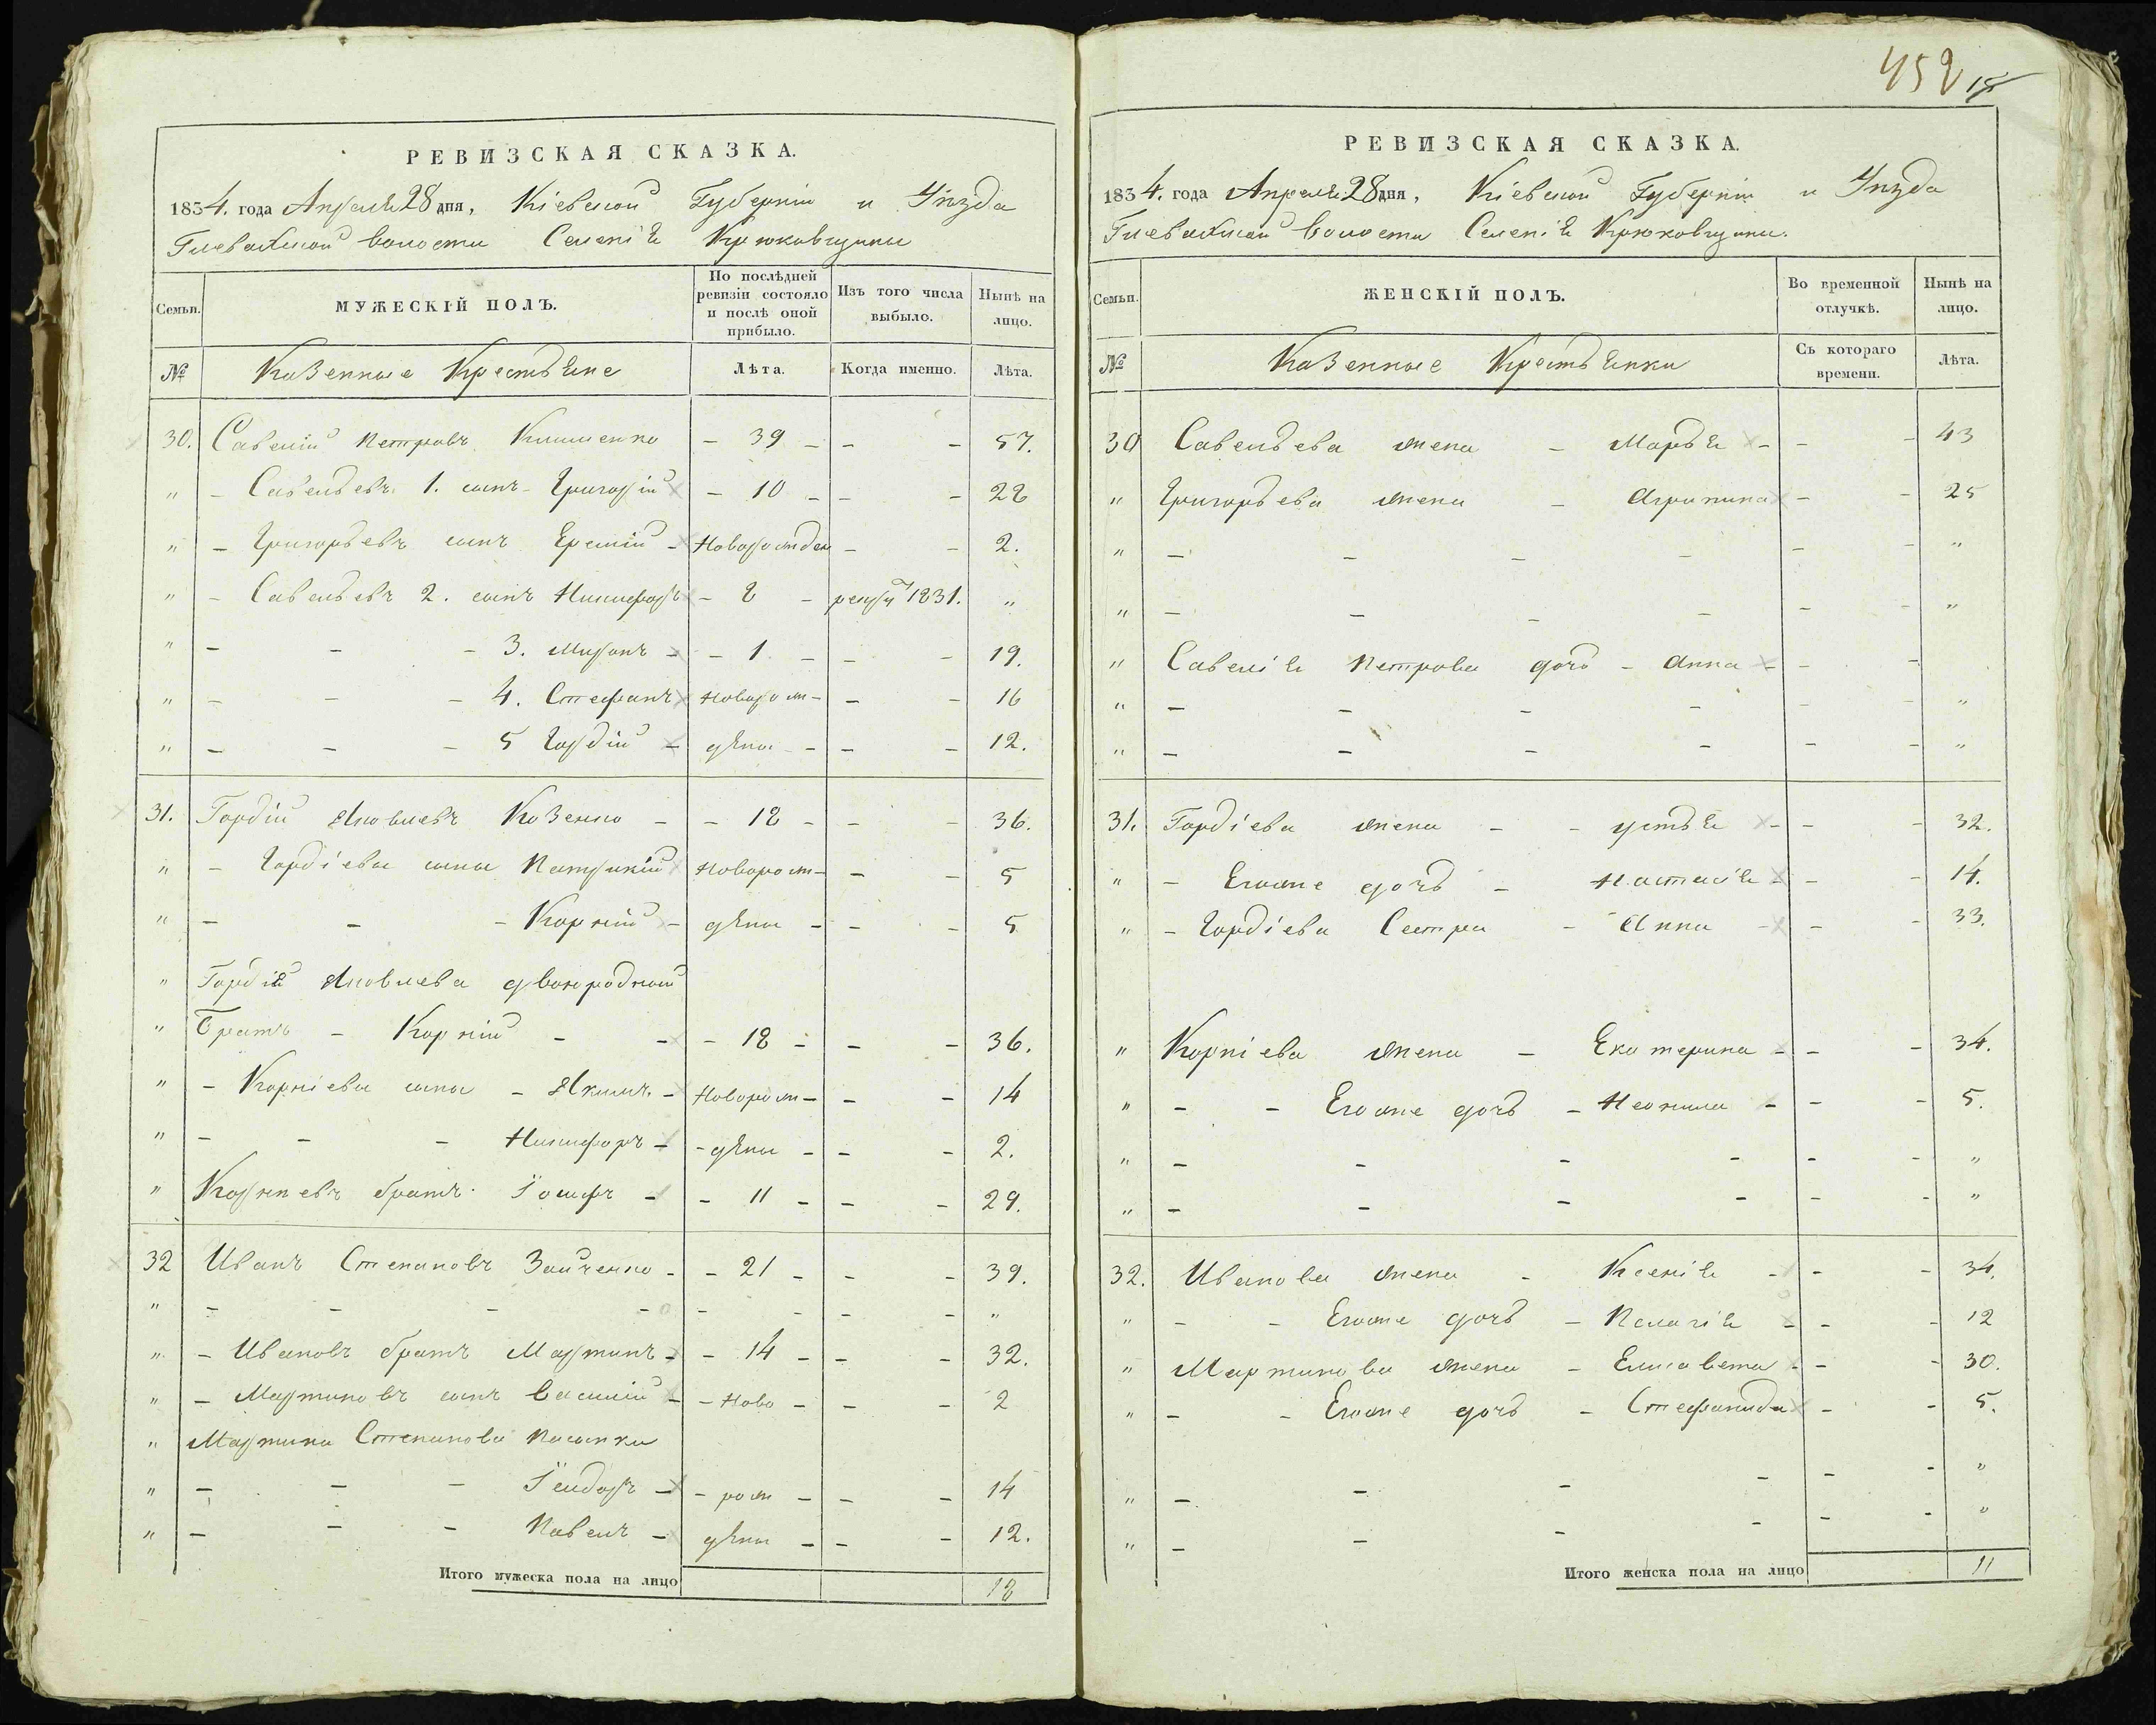 452
РЕВИЗСКАЯ СКАЗКА.
1834. года Апреля 28 дня, Кіевской Губерніи и Уѣзда
Глевахской волости Селенія Крюковщины
Семьи.
МУЖЕСКІЙ ПОЛЪ.
По послѣдней ревизіи состояло и послѣ оной прибыло.
Изъ того числа выбыло.
Нынѣ на лицо.
№
Казенные Крестьяне
Лѣта.
Когда именно.
Лѣта.
30. Савелій Петровъ Клименко - 39 - - - 57.
" - Савельевъ 1. сынъ - Григорій - 10 - - - 28
" - Григорьевъ сынъ Еремій - Новорожден - - 2.
" - Савельевъ 2. сынъ Никифоръ - 8 - рекру 1831. "
" - - - 3. Миронъ - - 1 - - - 19.
" - - - 4. Стефанъ Новорож - - - 16
" - - - 5 Гордій - дены - - - 12.
31. Гордій Яковлевъ Козенко - - 18 - - - 36.
" - Гордіевы сыны Патрикій Новорож - - - 5
" - - - Корній - дены - - - 5
" Гордія Яковлева двоюродный
" Братъ - Корній - - - 18 - - - 36.
" - Корніевы сыны - Якимъ - Новорож - - - 14
" - - - Никифоръ - - дены - - - 2.
" Корніевъ братъ Іосифъ - - 11 - - - 29.
32 Иванъ Степановъ Зайченко - - 21 - - - 39.
" - - - - - - - - "
" - Ивановъ братъ Мартинъ - - 14 - - - 32.
" - Мартиновъ сынъ Василій - - Ново - - - 2
" Мартина Степанова Пасынки
" - - - Ѳеидоръ - - рож - - - 14
" - - - Павелъ - дены - - - 12.
Итого мужеска пола на лицо 18
РЕВИЗСКАЯ СКАЗКА.
1834. года Апреля 28 дня, Кіевской Губерніи и Уѣзда
Глевахской волости Селенія Крюковщины.
Семьи.
ЖЕНСКІЙ ПОЛЪ.
Во временной отлучкѣ.
Нынѣ на лицо.
№
Казенные Крестьянки
Съ котораго времени.
Лѣта.
30 Савельева жена - Марья - - - 43
" Григорьева жена - Агрипина - - 25
" - - - - - - "
" - - - - - - "
" Савелія Петрова дочь - Анна - - -
" - - - - - - "
" - - - - - - "
31. Гордіева жена - - Устья - - - 32.
" - Егоже дочь - Настасія - - - 14.
" - Гордіева Сестра - Анна - - - 33.
" Корніева жена - Екатерина - - - 34.
" - - Егоже дочь - Неонила - - - 5.
" - - - - - - "
" - - - - - - "
32. Иванова жена - Ксенія - - - 34.
" - - Егоже дочь - Пелагія - - - 12
" Мартинова жена - Елисавета - - - 30.
" - - Егоже дочь - Стефанида - - 5.
" - - - - - - "
" - - - - - - "
Итого женска пола на лицо 11